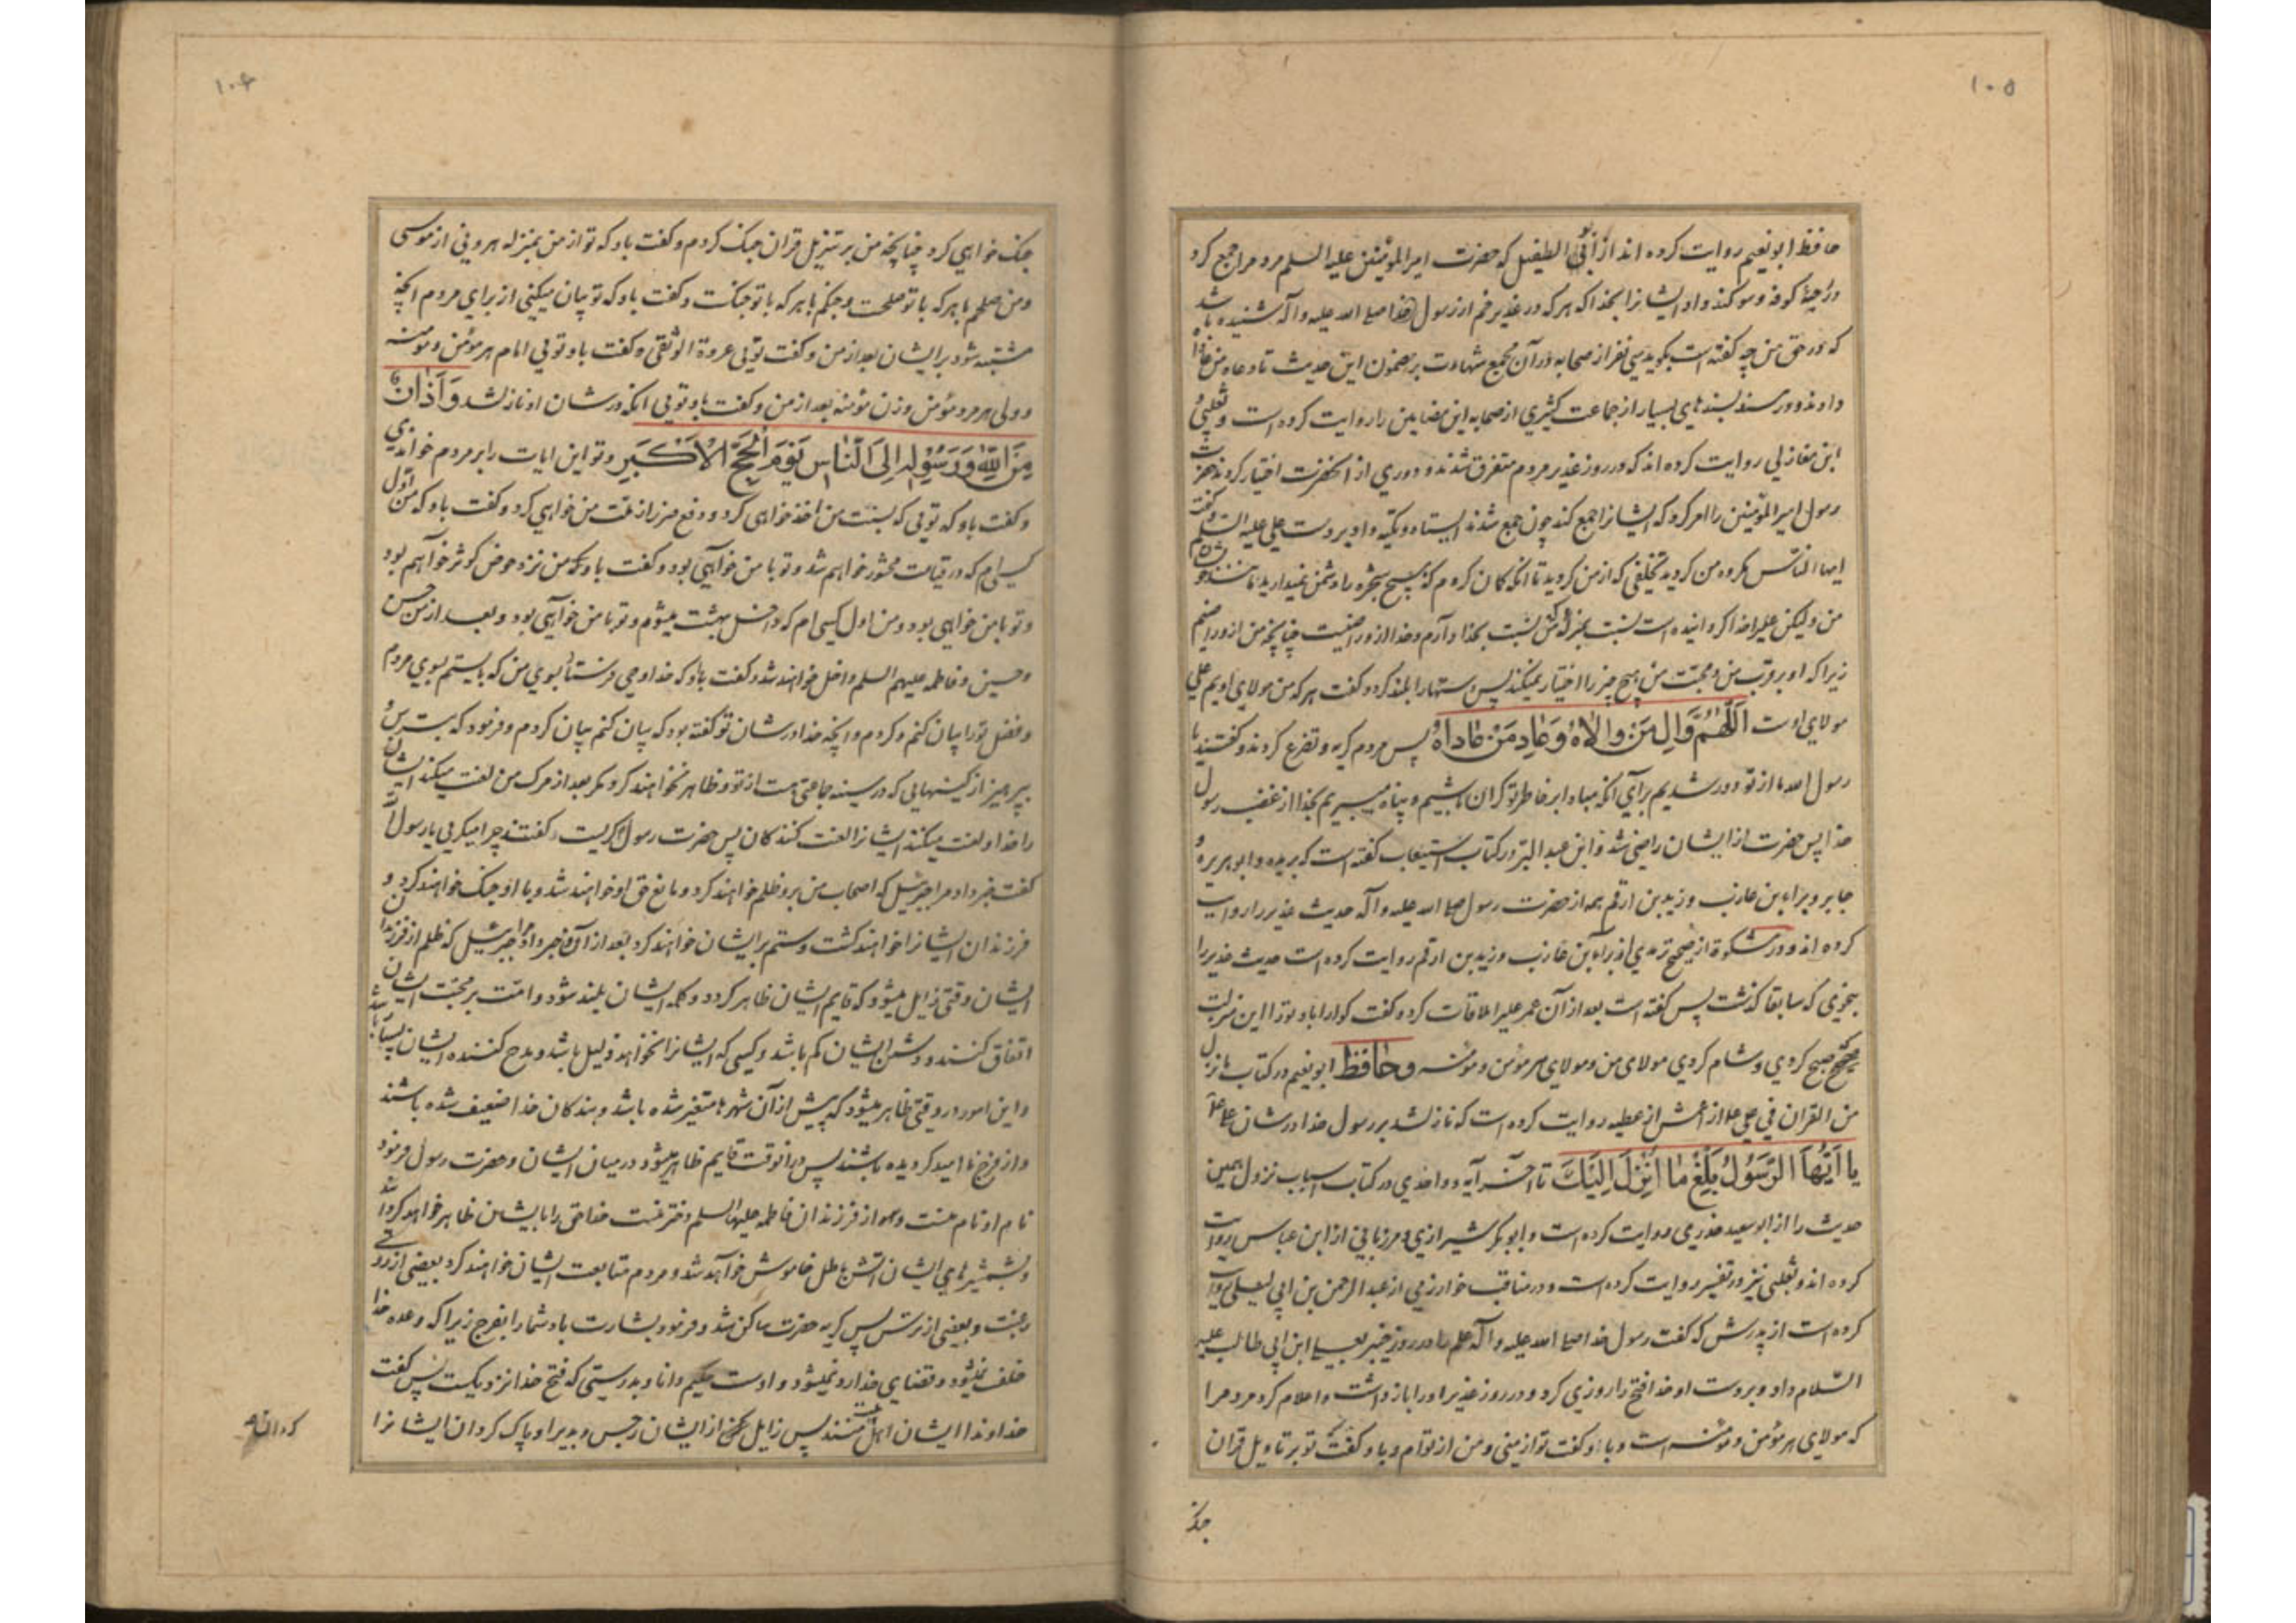 ۱۰۵
حافظ ابونعیم روایت کرده اند از ابی الطفیل که حضرت امیرالمؤمنین علیه السلم مردم را جمع کرد
در رحبهٔ کوفه و سوکند داد ایشانرا بخدا که هر که در غدیر خم از رسول خدا صلی الله علیه و آله شنیده باشد
که در حق من چه گفته است بکوید سی نفر از صحابه در آن مجمع شهادت بر مضمون این حدیث تا و عاد من عاداه
دادند و در مسند بسندهای بسیار از جماعت کثیری از صحابه این مضامین را روایت کرده است و ثعلبی و
ابن مغازلی روایت کرده اند که در روز غدیر مردم متفرق شدند و دوری از آنحضرت اختیار کردند حضرت
رسول امیرالمؤمنین را امر کرد که ایشانرا جمع کند چون جمع شدند ایستاد و تکیه داد بر دست علی علیه السلم و گفت
ایها الناس مکروه من کردید تخلفی که از من کردید تا آنکه کمان کردم که هیچ شجره را دشمن نمیدارید مانند شجره
من ولیکن علیرا خدا کردانیده است نسبت بمن بمنزله من نسبت بخدا دارم و خدا از او راضیست چنانچه من از او راضیم
زیرا که او بر قرب من و محبت من هیچ چیز را اختیار نمیکند پس دستها را بلند کرد و گفت هر که من مولای اویم علی
مولای اوست اللهم وال من والاه وعاد من عاداه پس مردم کریه و تضرع کردند و کفتند یا
رسول الله ما از تو دور شدیم برای آنکه مبادا بر خاطر تو کران باشیم و پناه میبریم بخدا از غضب رسول
خدا پس حضرت از ایشان راضی شد و ابن عبدالبر در کتاب استیعاب کفته است که بریده و ابوهریره و
جابر و براء بن عازب و زید بن ارقم همه از حضرت رسول صلی الله علیه و آله حدیث غدیر را روایت
کرده اند و در مشکوة از صحیح ترمذی از براء بن عازب و زید بن ارقم روایت کرده است حدیث غدیر را
بنحوی که سابقا کذشت پس کفته است بعد از آن عمر علیرا ملاقات کرد و کفت کوارا باد تو را این منزلت
صبح کردی و شام کردی مولای من و مولای هر مؤمن و مؤمنه و حافظ ابونعیم در کتاب ما نزل
من القران فی علی از اعمش از عطیه روایت کرده است که نازل شد بر رسول خدا در شان علی
یا ایها الرسول بلغ ما انزل الیک تا اخر آیه و واحدی در کتاب اسباب نزول همین
حدیث را از ابو سعید خدری روایت کرده است و ابوبکر شیرازی و مرزبانی از ابن عباس روایت
کرده اند و ثعلبی نیز در تفسیر روایت کرده است و در مناقب خوارزمی از عبد الرحمن بن ابی لیلی روایت
کرده است از پدرش که کفت رسول خدا صلی الله علیه و آله علم را در روز خیبر بعلی ابن ابی طالب علیه
السلام داد و بر دست او خدا فتح را روزی کرد و در روز غدیر او را بازداشت و اعلام کرد مردم را
که مولای هر مؤمن و مؤمنه است و با او کفت تو از منی و من از توام و با او کفت تو بر تاویل قران
جنک
۱۰۶
جنک خواهی کرد چنانچه من بر تنزیل قران جنک کردم و کفت باو که تو از من بمنزله هرونی از موسی
و من صلحم با هر که با تو صلحست و جنکم با هر که با تو جنکست و کفت باو که تو بیان میکنی از برای مردم آنچه
مشتبه شود بر ایشان بعد از من و کفت توئی عروة الوثقی و کفت باو توئی امام هر مؤمن و مؤمنه
و ولی هر مرد مؤمن و زن مؤمنه بعد از من و کفت باو توئی آنکه در شان او نازل شد وأذان
من الله ورسوله الی الناس یوم الحج الاکبر و تو این ایات را بر مردم خواندی
و کفت باو که توئی که بسنت من اخذ خواهی کرد و دفع ضرر از ملت من خواهی کرد و کفت باو که من اول
کسی ام که در قیامت محشور خواهم شد و تو با من خواهی بود و کفت باو که من نزد حوض کوثر خواهم بود
و تو با من خواهی بود و من اول کسی ام که داخل بهشت میشوم و تو با من خواهی بود و بعد از من حسن
و حسین و فاطمه علیهم السلم داخل خواهند شد و کفت باو که خدا وحی فرستاد بسوی من که بایستم بسوی مردم
و فضل تو را بیان کنم و کردم و آنچه خدا در شان تو کفته بود که بیان کنم بیان کردم و فرمود که بترس و
بپرهیز از کینهایی که در سینه جماعتی هست از تو و ظاهر نخواهند کرد مکر بعد از مرک من لعنت میکند ایشان
را خدا و لعنت میکنند ایشانرا لعنت کنندکان پس حضرت رسول کریست کفتند چرا میکریی یا رسول الله
کفت خبر داد مرا جبرئیل که اصحاب من برو ظلم خواهند کرد و مانع حق او خواهند شد و با او جنک خواهند کرد و
فرزندان ایشانرا خواهند کشت و ستم بر ایشان خواهند کرد بعد از او و خبر داد مرا جبرئیل که ظلم از فرزندان
ایشان وقتی زایل میشود که قایم ایشان ظاهر کردد و کلمه ایشان بلند شود و امت بر محبت ایشان
اتفاق کنند و دشمن ایشان کم باشد و کسی که ایشانرا نخواهد ذلیل باشد و مدح کننده ایشان بسیار باشد
و این امور در وقتی ظاهر میشود که پیش از آن شهرها متغیر شده باشد و بندکان خدا ضعیف شده باشند
و از فرج ناامید کردیده باشند پس در آنوقت قایم ظاهر میشود در میان ایشان و حضرت رسول فرمود
نام او نام منست و او از فرزندان فاطمه علیها السلم دختر منست خدا حق را بایشان ظاهر خواهد کردانید
و بشمشیرهای ایشان آتش باطل خاموش خواهد شد و مردم متابعت ایشان خواهند کرد بعضی از روی
رغبت و بعضی از ترس پس کریه حضرت ساکن شد و فرمود بشارت باد شما را بفرج زیرا که وعده خدا
خلف نمیشود و قضای خدا رد نمیشود و اوست حکیم و دانا و بدرستی که فتح خدا نزدیکست پس کفت
خداوندا ایشان اهل منند پس زایل کن از ایشان رجس و بدی را و پاک کردان ایشانرا